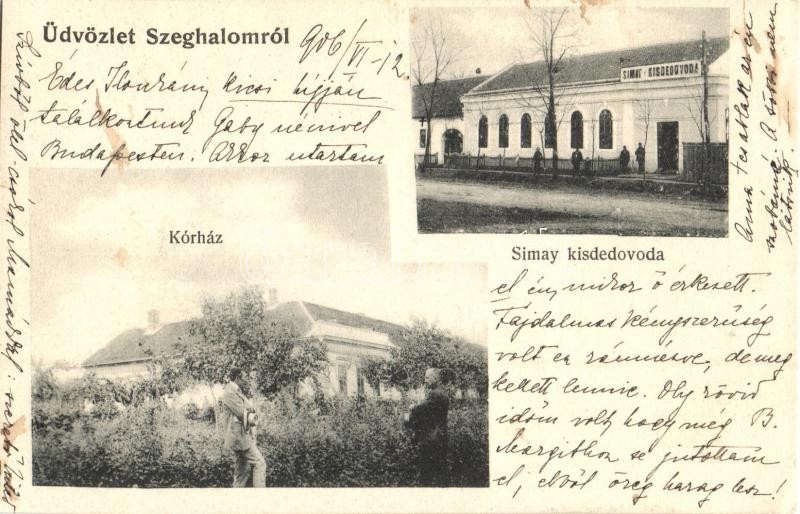 Üdvözlet Szeghalomról
906/VI-12.
Édes Ilonkám kicsi híjján
találkoztunk Gaby nénivel
Budapesten. Akkor utaztam
SIMAY KISDEDOVODA
Simay kisdedovoda
Kórház
el én, mikor ő érkezett.
Fájdalmas kényszerűség
volt ez reánk nézve, de meg
kellett lennie. Oly rövid
időm volt, hogy még B.
Margithoz se jutottam
el, ebből öreg harag lesz!
Anna
látnak.
csókol